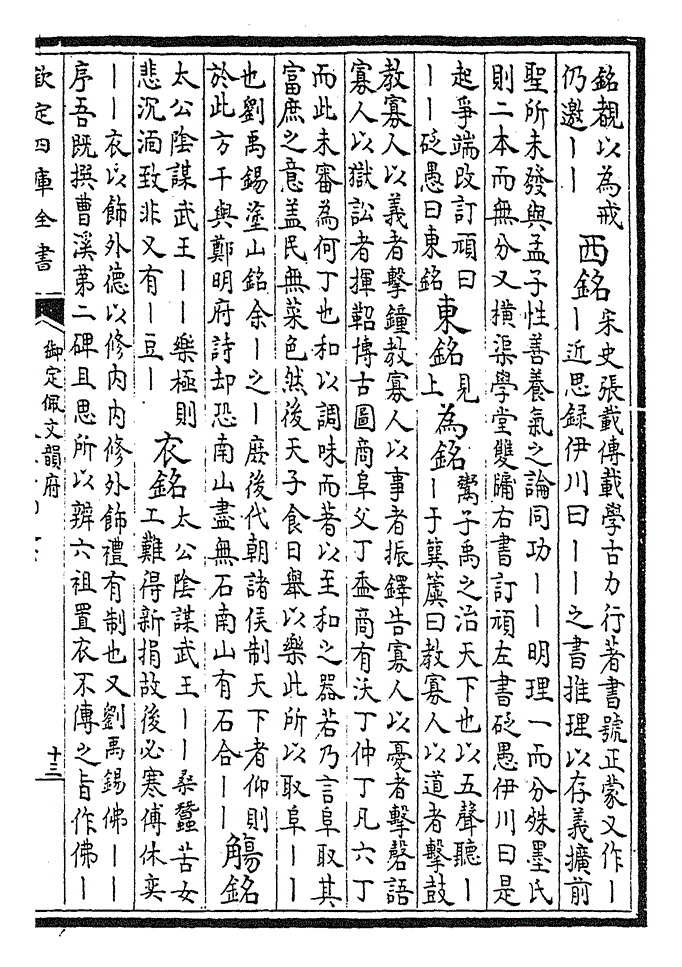 銘覩以為戒
仍邀丨丨
西銘
宋史張載傳載學古力行著書號正蒙又作丨
丨近思録伊川曰丨丨之書推理以存義擴前
聖所未發與孟子性善養氣之論同功丨丨明理一而分殊墨氏
則二本而無分又横渠學堂雙牖右書訂頑左書砭愚伊川曰是
起爭端改訂頑曰
丨丨砭愚曰東銘
東銘
見
上
為銘
鬻子禹之治天下也以五聲聽丨
丨于簨簴曰教寡人以道者擊鼓
教寡人以義者擊鐘教寡人以事者振鐸告寡人以憂者擊磬語
寡人以獄訟者揮鞀博古圖商阜父丁盉商有沃丁仲丁凡六丁
而此未審為何丁也和以調味而著以至和之器若乃言阜取其
富庶之意盖民無菜色然後天子食日舉以樂此所以取阜丨丨
也劉禹錫塗山銘余丨之丨廏後代朝諸侯制天下者仰則
於此方干與鄭明府詩却恐南山盡無石南山有石合丨丨
觴銘
太公陰謀武王丨丨樂極則
悲沉湎致非又有丨豆丨
衣銘
太公陰謀武王丨丨桑蠶苦女
工難得新捐故後必寒傅休奕
丨丨衣以飾外德以修内内修外飾禮有制也又劉禹錫佛丨丨
序吾既撰曹溪第二碑且思所以辨六祖置衣不傳之旨作佛丨
欽定四庫全書
御定佩文韻府
十三